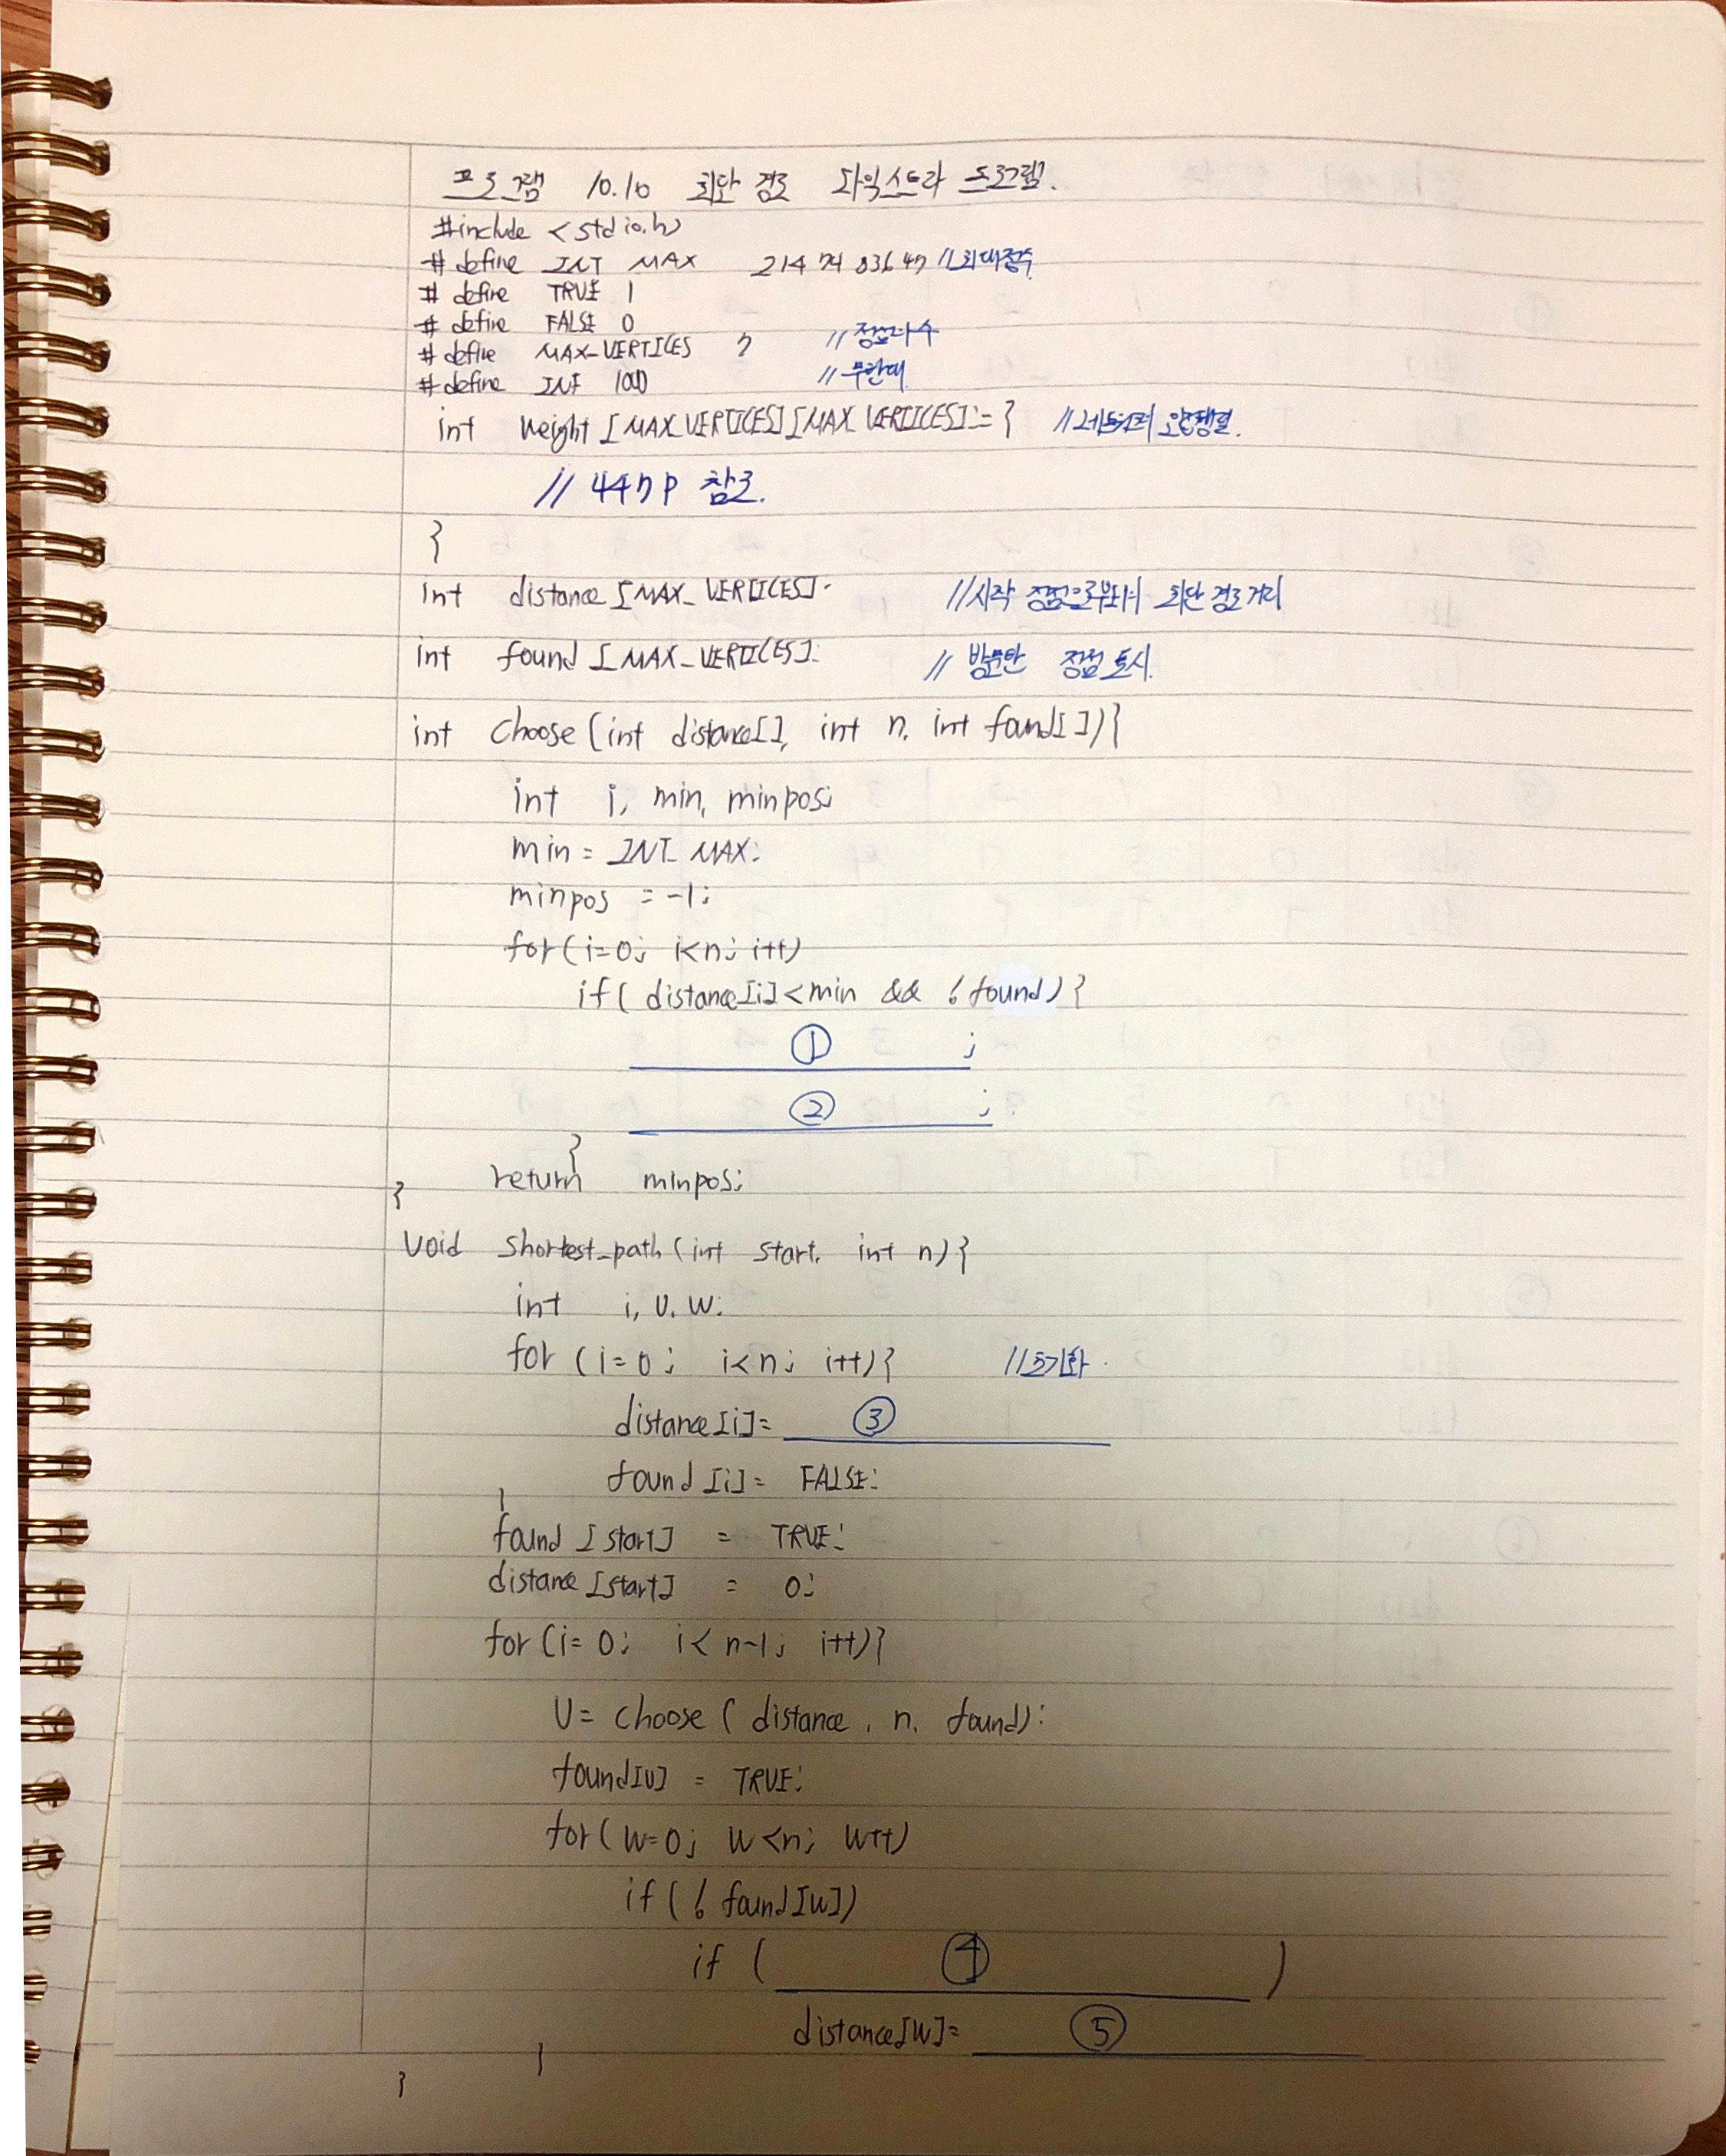 프로그램 10.10 최단 경로 다익스트라 프로그램.
#include <stdio.h>
# define INT MAX 2147483647 //최대정수
# define TRUE 1
# define FALSE 0
# define MAX_VERTICES 7 // 정점의수
# define INF 1000 // 무한대
int weight [MAX_VERTICES][MAX_VERTICES]={ //네트워크 인접행렬.
// 447p 참고.
}
int distance [MAX_VERTICES]; //시작 정점으로부터의 최단 경로 거리
int found [MAX_VERTICES]; // 방문한 정점 표시.
int choose (int distance[], int n, int found[]){
int i, min, minpos;
min = INT_MAX;
minpos = -1;
for (i=0; i<n; i++)
if ( distance[i]<min && !found){
① ;
② ;
}
return minpos;
}
void shortest_path (int start, int n){
int i, u, w;
for (i=0; i<n; i++){ //초기화
distance[i]= ③
found [i]= FALSE;
}
found [start] = TRUE;
distance [start] = 0;
for (i=0; i<n-1; i++){
u= choose ( distance, n, found);
found[u] = TRUE;
for (w=0; w<n; w++)
if ( ! found[w])
if ( ④ )
distance[w]= ⑤
}
}